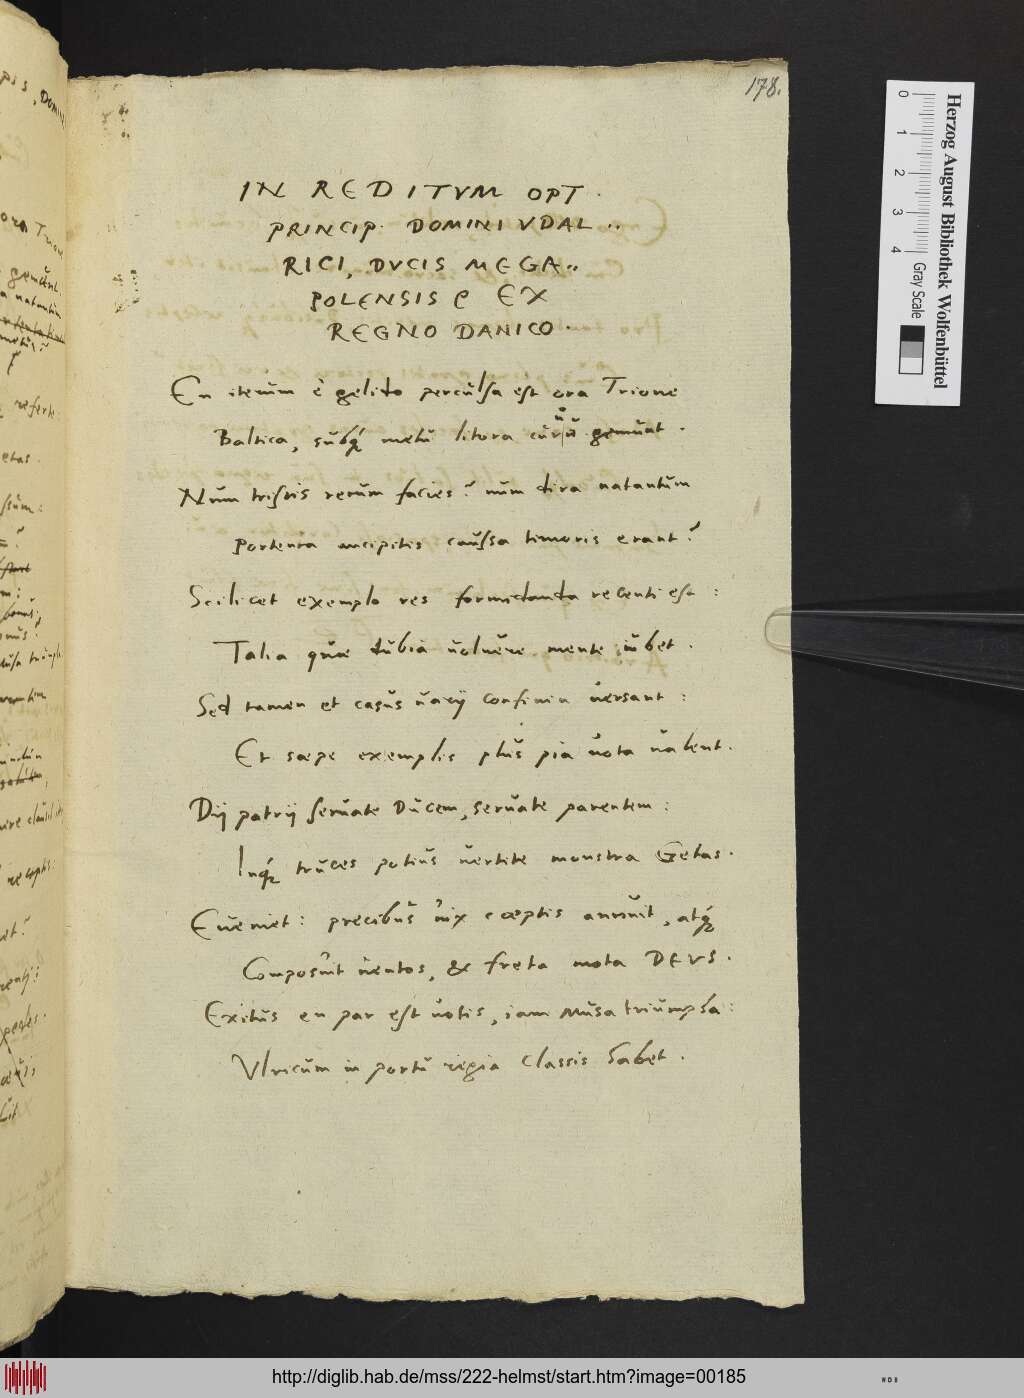 178.
IN REDITVM OPT.
PRINCIP. DOMINI VDAL..
RICI, DVCIS MEGA..
POLENSIS EX
REGNO DANICO.
En iterum è gelido perculsa est ora Trione
Baltica, subq́ metu litora gemuat.
Num tristis rerum facies? num dira natantum
Portenta ancipitis caussa timoris erant?
Scilicet exemplo res formidanda recenti est:
Talia quæ dubia uoluere mente iubet.
Sed tamen et casus uarij confinia uersant:
Et sæpe exemplis plus pia uota ualent.
Dij patrij seruate Ducem, seruate parentem:
Inq́ truces potius uertite monstra Getas.
Eueniet: precibus uix cœptis annuit, atq́
Composuit uentos, & freta mota DEVS.
Exitus en par est uotis, iam Musa triumpha:
Vlricum in portu regia classis habet.
Herzog August Bibliothek Wolfenbüttel
0 1 2 3 4 Gray Scale
http://diglib.hab.de/mss/222-helmst/start.htm?image=00185